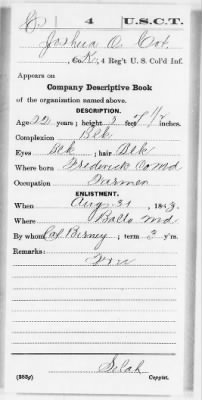 C 4 U.S.C.T.
Joshua O. Cof.
, Co. K, 4 Reg't U. S. Col'd Inf.
Appears on
Company Descriptive Book
of the organization named above.
DESCRIPTION.
Age 22 years; height 5 feet 7 1/2 inches.
Complexion Blk
Eyes Blk ; hair Blk
Where born Frederick Co Md
Occupation Farmer
ENLISTMENT.
When Aug 31 , 1863.
Where Balto Md
By whom Col Birney ; term 3 y'rs.
Remarks:
Free
Selah
(383g) Copyist.